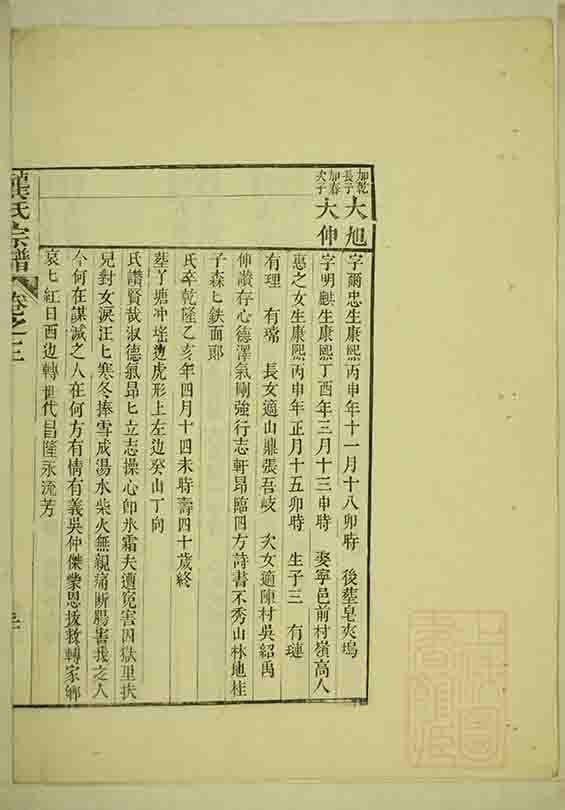 加乾
長子
大旭
字爾忠生康熙丙申年十一月十八卯時 後塟皂夾塢
加春
次子
大伸
字明麒生康熙丁酉年三月十三申時 娶寧邑前村嶺高人
惠之女生康熙丙申年正月十五卯時 生子三 有璉
有理 有瑺 長女適山鼎張吾岐 次女適陳村吳紹禹
伸讚存心德澤氣剛強行志軒昂臨四方詩書不秀山林地桂
子森匕鉄面郎
氏卒乾隆乙亥年四月十四未時壽四十歲終
塟丫塘冲塋邉虎形上左边癸山丁向
氏讚賢哉淑德氣昂匕立志操心即氷霜夫遭冤害囚獄里扶
兒對女淚汪匕寒冬捧雪成湯水柴火無親痛断腸害我之人
今何在謀滅之人在何方有情有義吳仲傑蒙恩拔救轉家鄉
哀匕紅日西边轉世代昌隆永流芳
氏宗譜 卷之二